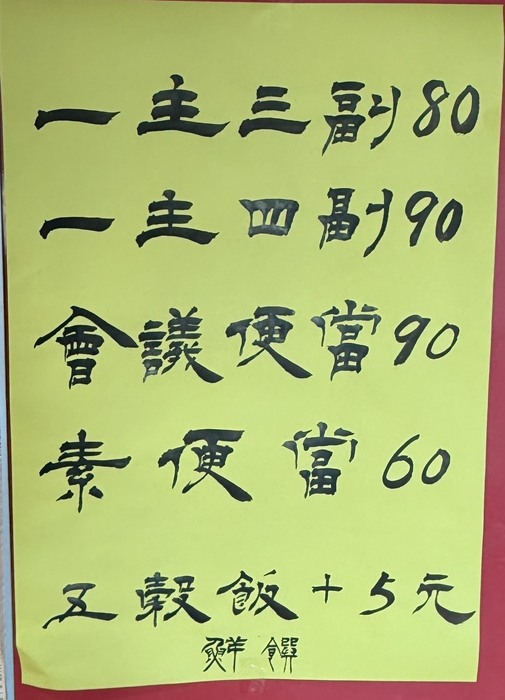 一主三副80
一主四副90
會議便當90
素便當60
五穀飯+5元
鮮饌